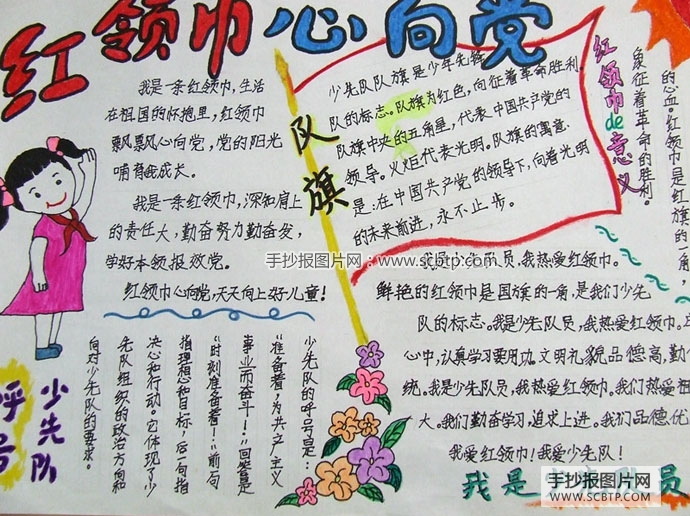 红领巾心向党
我是一条红领巾，生活
在祖国的怀抱里，红领巾
飘飘心向党，党的阳光
哺育我成长。
我是一条红领巾，深知肩上
的责任大，勤奋努力勤奋发，
学好本领报效党。
红领巾心向党，天天向上好儿童！
队旗
少先队队旗是少年先锋
队的标志。队旗为红色，向征着革命胜利.
队旗中央的五角星，代表中国共产党的
领导。火炬代表光明。队旗的寓意
是：在中国共产党的领导下，向着光明
的未来前进，永不止步。
红领巾de意义
的心血。红领巾是红旗的一角，
象征着革命的胜利。
手抄报图片网：www.scbtp.com
我是少先队员，我热爱红领巾。
鲜艳的红领巾是国旗的一角，是我们少先
队的标志。我是少先队员，我热爱红领巾。
心中，认真学习要用功。文明礼貌品德高，勤
统。我是少先队员，我热爱红领巾。我们热爱祖
大。我们勤奋学习，追求上进。我们品德优
我爱红领巾！我爱少先队！
我是
员
少先队
呼号
少先队的呼号是：
“准备着，为共产主义
事业而奋斗！”回答是
“时刻准备着！”前句
指理想和目标，后一句指
决心和行动。它体现了少
先队组织的政治方向和
向对少先队的要求。
手抄报图片网
WWW.SCBTP.COM